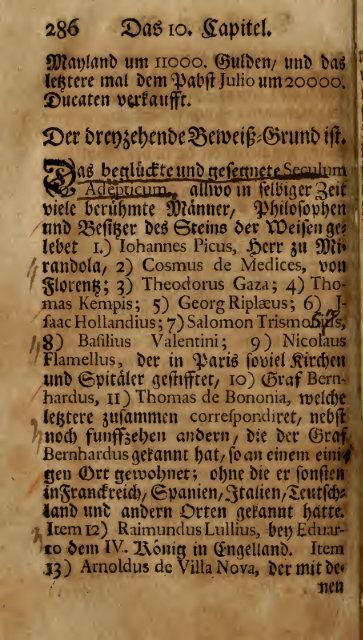 286 Das 10. Capitel.
Mayland um 11000. Gulden/ und das
letztere mal dem Pabst Julio um 20000.
Ducaten verkaufft.
Der dreyzehende Beweiß-Grund ist.
Das beglückte und gesegnete Seculum
Adepticum, allwo in selbiger Zeit
viele berühmte Männer, Philosophen
und Besitzer des Steins der Weisen ge-
lebet 1.) Iohannes Picus, Herr zu Mi-
randola, 2) Cosmus de Medices, von
Florentz; 3) Theodorus Gaza; 4) Tho-
mas Kempis; 5) Georg Riplæus; 6) J-
saac Hollandius; 7) Salomon Trismosinus,
8) Basilius Valentini; 9) Nicolaus
Flamellus, der in Paris soviel Kirchen
und Spitäler gestifftet, 10) Graf Bern-
hardus, 11) Thomas de Bononia, welche
letztere zusammen correspondiret, nebst
noch funffzehen andern, die der Graf
Bernhardus gekannt hat, so an einem eini-
gen Ort gewohnet; ohne die er sonsten
in Franckreich/ Spanien/ Italien/ Teutsch-
land und andern Orten gekannt hatte.
Item 12) Raimundus Lullius, bey Eduar-
to dem IV. König in Engelland. Item
13) Arnoldus de Villa Nova, der mit de-
nen